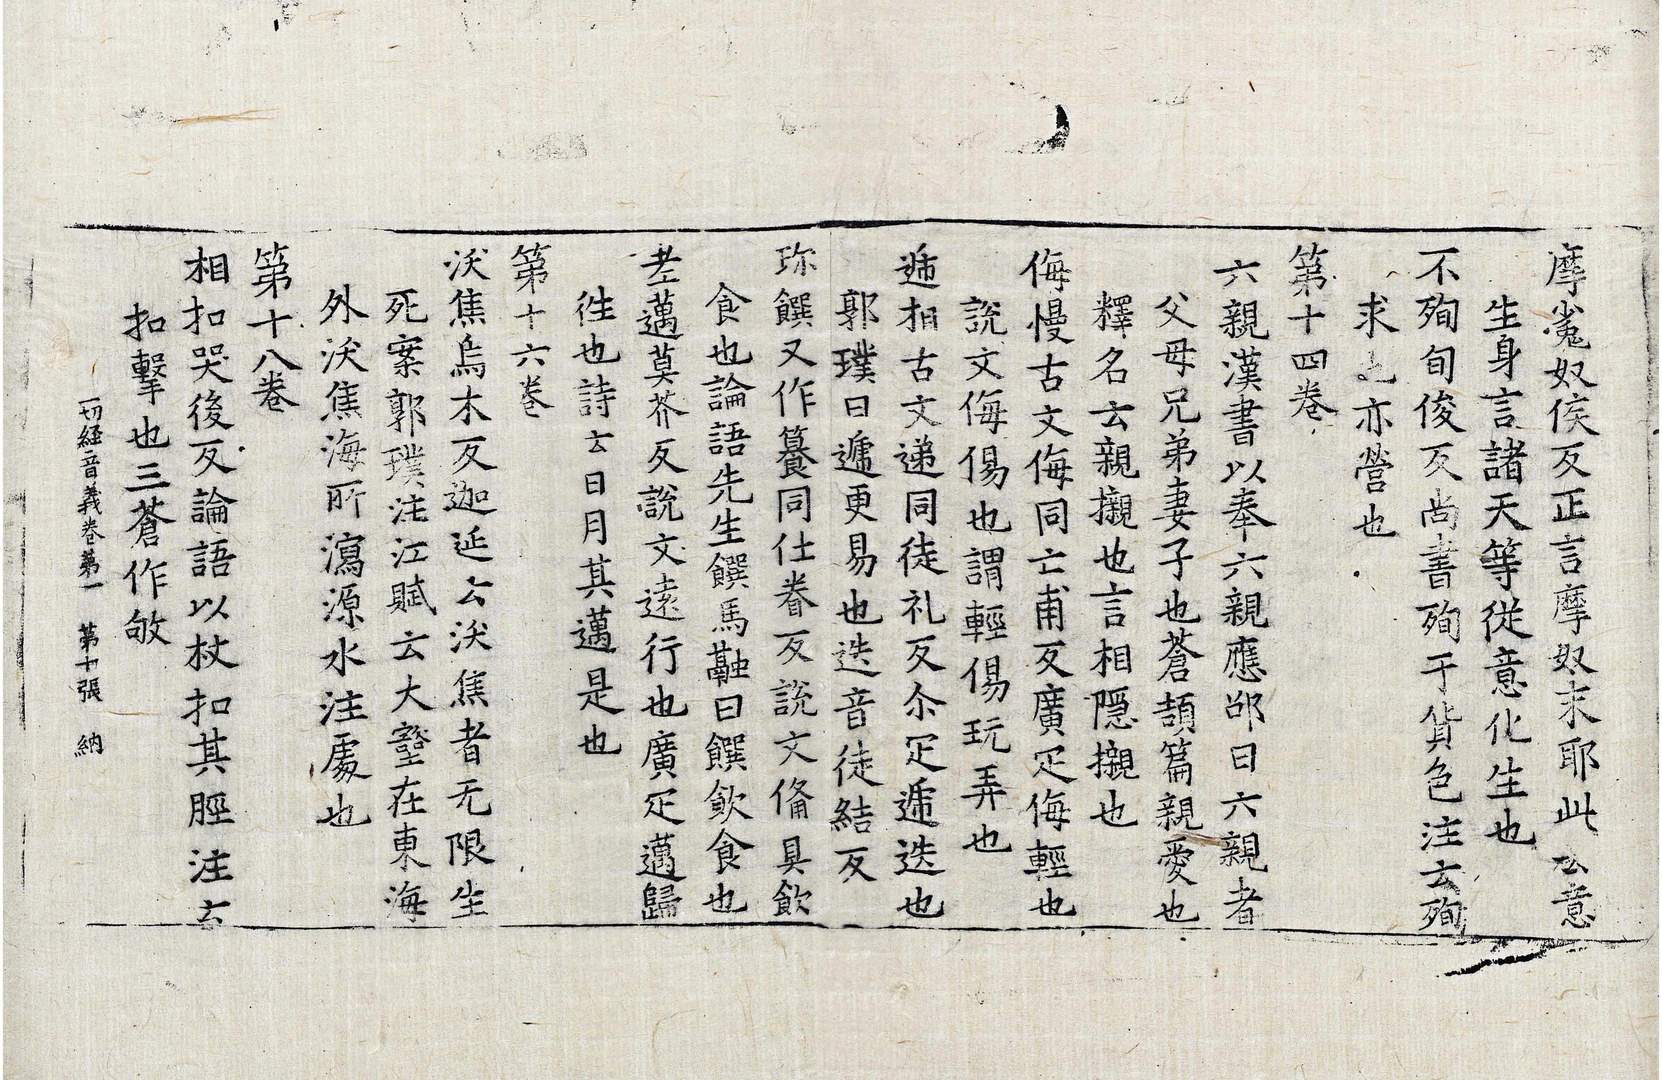 摩㝹奴侯反正言摩奴末耶此云意
生身言諸天等從意化生也
不殉旬俊反尚書殉于貨色注云殉
求也亦營也
第十四卷
六親漢書以奉六親應邵曰六親者
父母兄弟妻子也蒼頡篇親愛也
釋名云親攡也言相隱攡也
侮慢古文侮同亡甫反廣疋侮輕也
說文侮傷也謂輕傷玩弄也
遞相古文递同徒礼反尒疋遞迭也
郭璞曰遞更易也迭音徒結反
珎饌又作籑同仕眷反說文俻具飲
食也論語先生饌馬融曰饌飲食也
老邁莫芥反說文遠行也廣疋邁歸
徃也詩云日月其邁是也
第十六卷
沃焦烏木反迦延云沃焦者无限生
死案郭璞注江賦云大壑在東海
外沃焦海所瀉源水注處也
第十八卷
相扣哭後反論語以杖扣其脛注云
扣擊也三蒼作敂
一切経音義卷第一　第十張　納